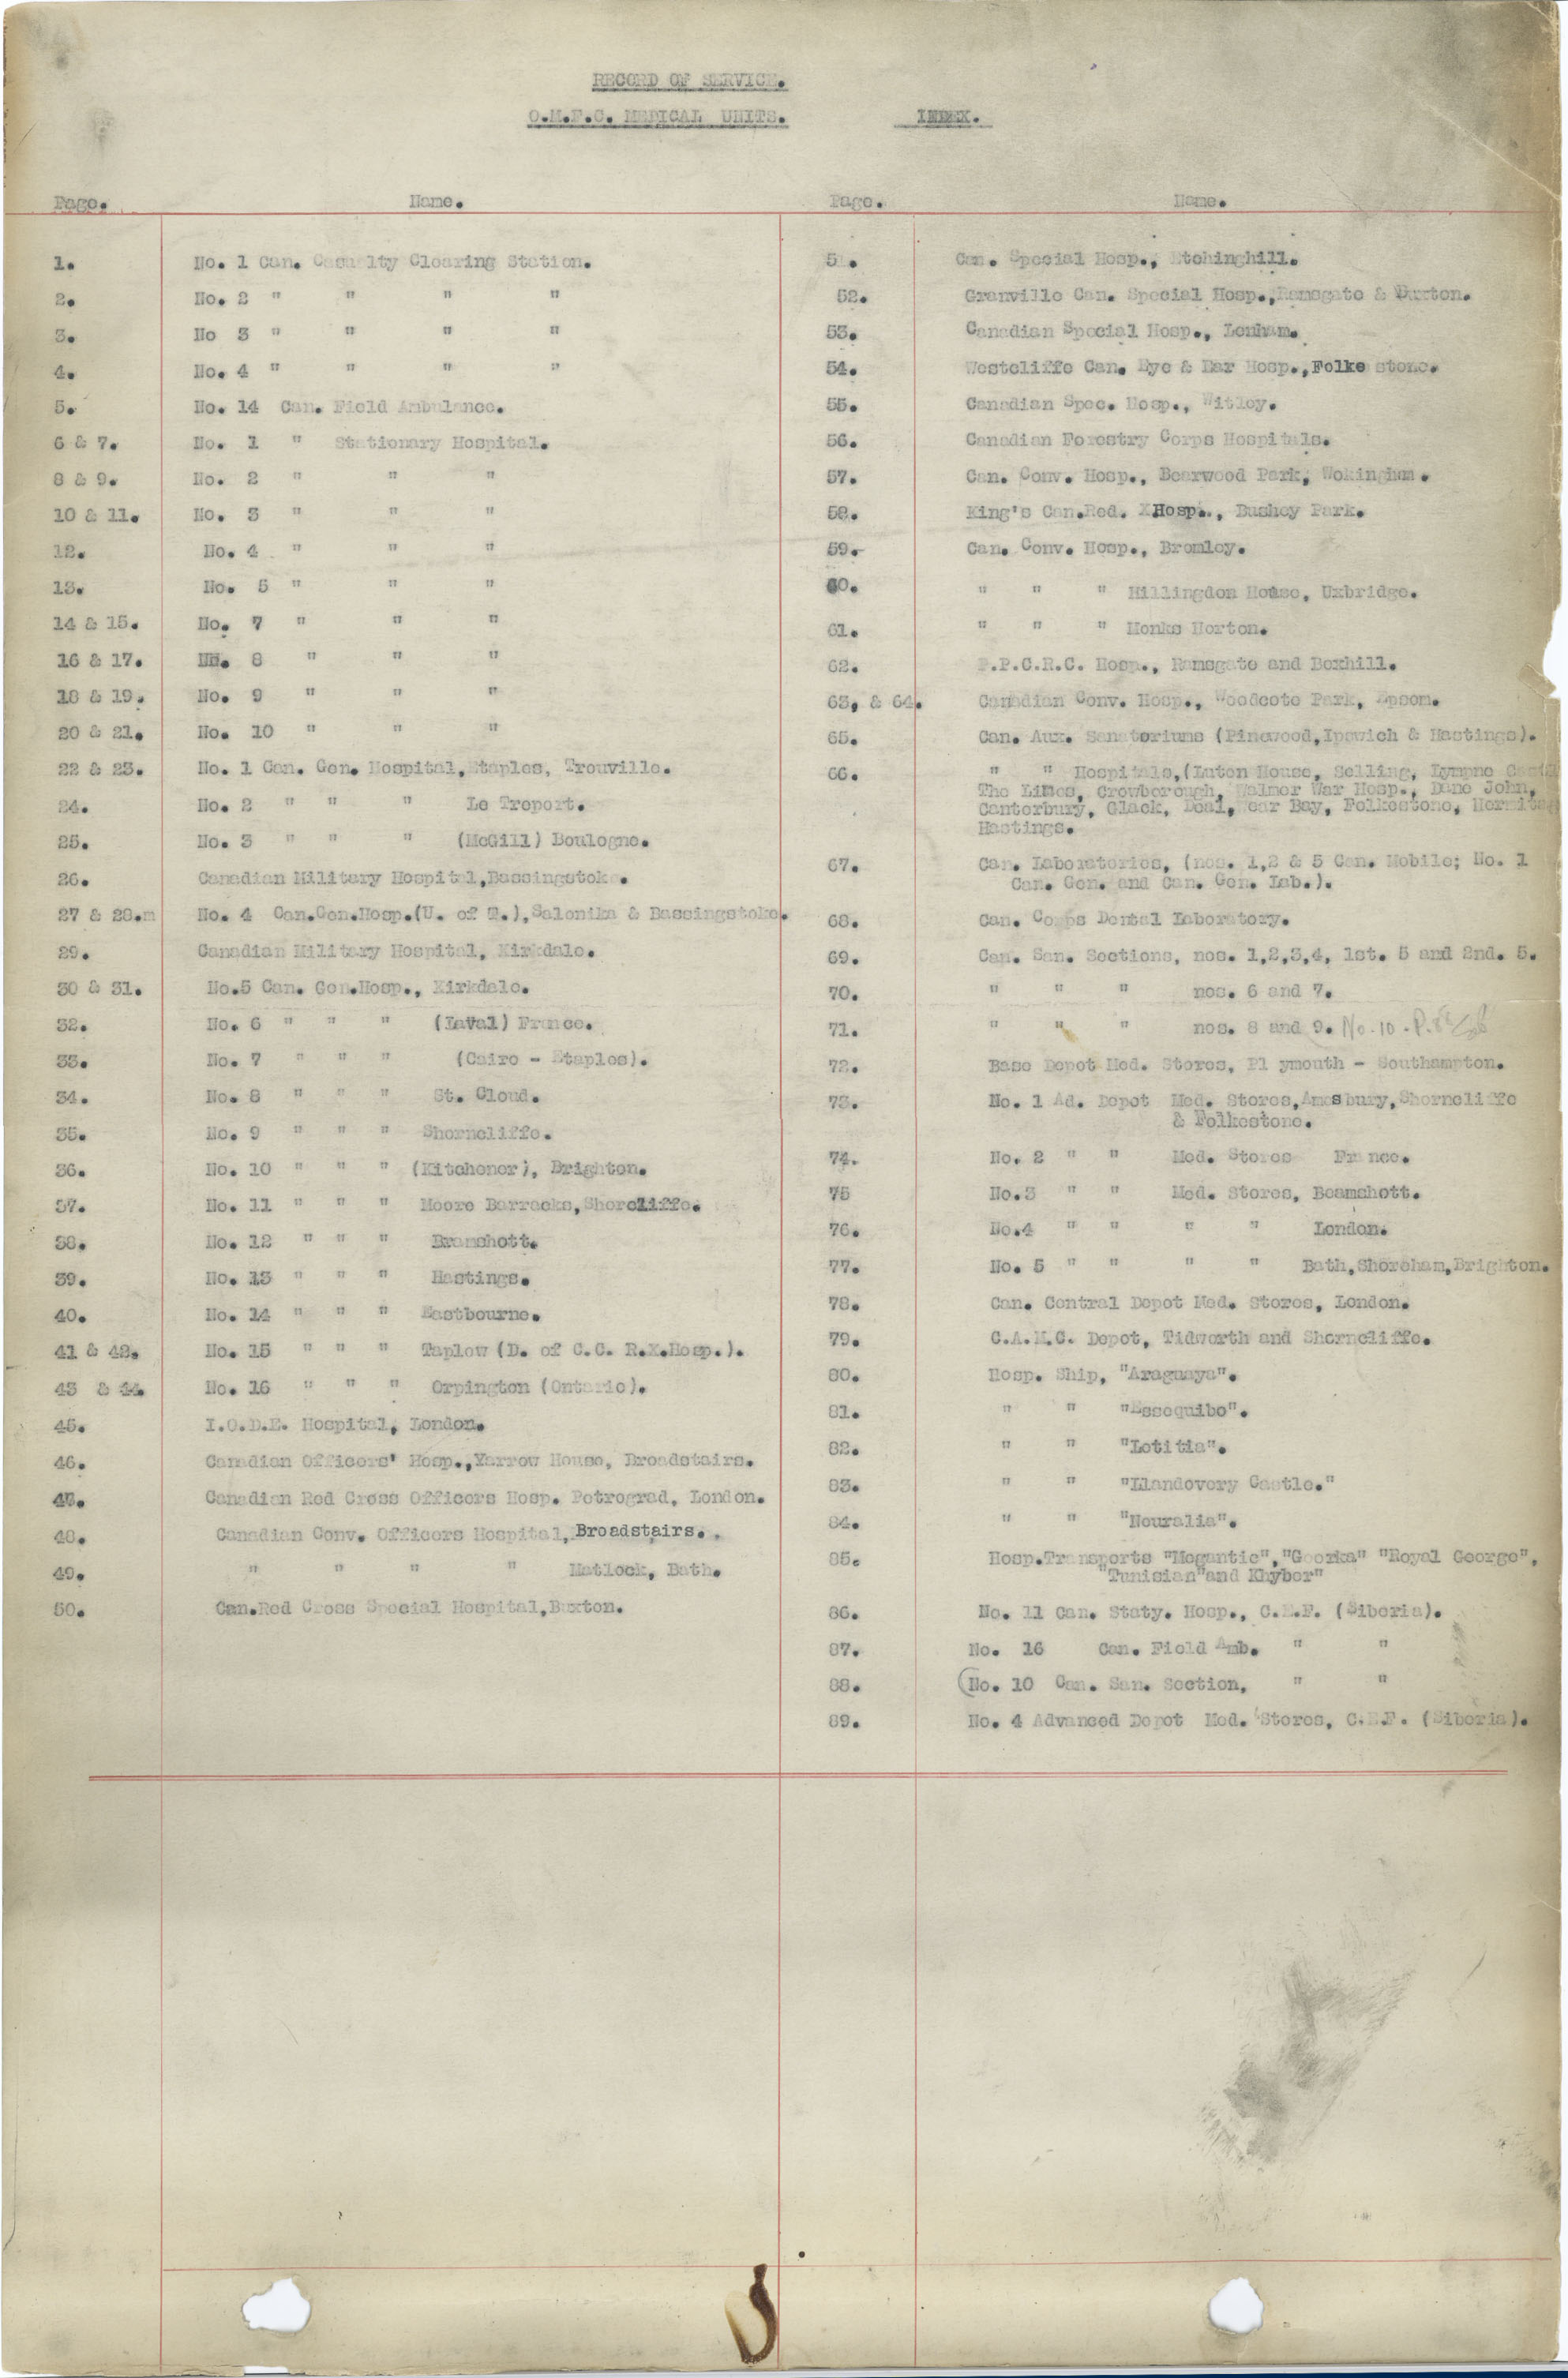 RECORD OF SERVICE.
O.M.F.C. MEDICAL UNITS. INDEX.
Page. Name.
1. No. 1 Can. Casualty Clearing Station.
2. No. 2 " " " "
3. No 3 " " " "
4. No. 4 " " " "
5. No. 14 Can. Field Ambulance.
6 & 7. No. 1 " Stationary Hospital.
8 & 9. No. 2 " " "
10 & 11. No. 3 " " "
12. No. 4 " " "
13. No. 5 " " "
14 & 15. No. 7 " " "
16 & 17. No. 8 " " "
18 & 19. No. 9 " " "
20 & 21. No. 10 " " "
22 & 23. No. 1 Can. Gen. Hospital, Etaples, Trouville.
24. No. 2 " " " Le Treport.
25. No. 3 " " " (McGill) Boulogne.
26. Canadian Military Hospital, Bassingstoke.
27 & 28. No. 4 Can.Gen.Hosp.(U. of T.), Salonika & Bassingstoke.
29. Canadian Military Hospital, Kirkdale.
30 & 31. No.5 Can. Gen.Hosp., Kirkdale.
32. No. 6 " " " (Laval) France.
33. No. 7 " " " (Cairo - Etaples).
34. No. 8 " " " St. Cloud.
35. No. 9 " " " Shorncliffe.
36. No. 10 " " " (Kitchener), Brighton.
37. No. 11 " " " Moore Barracks, Shorcliffe.
38. No. 12 " " " Bramshott.
39. No. 13 " " " Hastings.
40. No. 14 " " " Eastbourne.
41 & 42. No. 15 " " " Taplow (D. of C.C. R.X.Hosp.).
43 & 44. No. 16 " " " Orpington (Ontario).
45. I.O.D.E. Hospital, London.
46. Canadian Officers' Hosp., Yarrow House, Broadstairs.
47. Canadian Red Cross Officers Hosp. Petrograd, London.
48. Canadian Conv. Officers Hospital, Broadstairs.
49. " " " " Matlock, Bath.
50. Can.Red Cross Special Hospital, Buxton.
Page. Name.
51. Can. Special Hosp., Etchinghill.
52. Granville Can. Special Hosp., Ramsgate & Buxton.
53. Canadian Special Hosp., Lenham.
54. Westcliffe Can. Eye & Ear Hosp., Folke stone.
55. Canadian Spec. Hosp., Witley.
56. Canadian Forestry Corps Hospitals.
57. Can. Conv. Hosp., Bearwood Park, Wokingham.
58. King's Can.Red. X Hosp., Bushey Park.
59. Can. Conv. Hosp., Bromley.
60. " " " Hillingdon House, Uxbridge.
61. " " " Monks Horton.
62. P.P.C.R.C. Hosp., Ramsgate and Bexhill.
63, & 64. Canadian Conv. Hosp., Woodcote Park, Epsom.
65. Can. Aux. Sanatoriums (Pinewood, Ipswich & Hastings).
66. " " Hospitals, (Luton House, Selling, Lympne
The Limes, Crowborough, Walmer War Hosp., Dane John,
Canterbury, Glack, Deal, Bay, Folkestone,
Hastings.
67. Can. Laboratories, (nos. 1,2 & 5 Can. Mobile; No. 1
Can. Gen. and Can. Gen. Lab.).
68. Can. Corps Dental Laboratory.
69. Can. San. Sections, nos. 1,2,3,4, 1st. 5 and 2nd. 5.
70. " " " nos. 6 and 7.
71. " " " nos. 8 and 9. No. 10 - P.
72. Base Depot Med. Stores, Pl ymouth - Southampton.
73. No. 1 Ad. Depot Med. Stores, Amesbury, Shorncliffe
& Folkestone.
74. No. 2 " " Med. Stores France.
75 No.3 " " Med. Stores, Beamshott.
76. No.4 " " " " London.
77. No. 5 " " " " Bath, Shoreham, Brighton.
78. Can. Central Depot Med. Stores, London.
79. C.A.M.C. Depot, Tidworth and Shorncliffe.
80. Hosp. Ship, "Araguaya".
81. " " "Essequibo".
82. " " "Letitia".
83. " " "Llandovery Castle."
84. " " "Neuralia".
85. Hosp.Transports "Megantic", "Goorka" "Royal George",
"Tunisian" and Khyber"
86. No. 11 Can. Staty. Hosp., C.E.F. (Siberia).
87. No. 16 Can. Field Amb. " "
88. (No. 10 Can. San. Section, " "
89. No. 4 Advanced Depot Med. Stores, C.E.F. (Siberia).